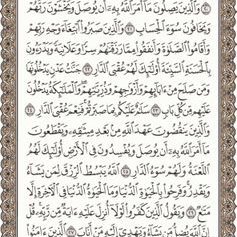 وَٱلَّذِينَ يَصِلُونَ مَآ أَمَرَ ٱللَّهُ بِهِۦٓ أَن يُوصَلَ وَيَخْشَوْنَ رَبَّهُمْ
وَيَخَافُونَ سُوٓءَ ٱلْحِسَابِ ٢١ وَٱلَّذِينَ صَبَرُوا۟ ٱبْتِغَآءَ وَجْهِ رَبِّهِمْ
وَأَقَامُوا۟ ٱلصَّلَوٰةَ وَأَنفَقُوا۟ مِمَّا رَزَقْنَٰهُمْ سِرًّا وَعَلَانِيَةً وَيَدْرَءُونَ
بِٱلْحَسَنَةِ ٱلسَّيِّئَةَ أُو۟لَٰٓئِكَ لَهُمْ عُقْبَى ٱلدَّارِ ٢٢ جَنَّٰتُ عَدْنٍ يَدْخُلُونَهَا
وَمَن صَلَحَ مِنْ ءَابَآئِهِمْ وَأَزْوَٰجِهِمْ وَذُرِّيَّٰتِهِمْ وَٱلْمَلَٰٓئِكَةُ يَدْخُلُونَ
عَلَيْهِم مِّن كُلِّ بَابٍ ٢٣ سَلَٰمٌ عَلَيْكُم بِمَا صَبَرْتُمْ فَنِعْمَ عُقْبَى ٱلدَّارِ ٢٤
وَٱلَّذِينَ يَنقُضُونَ عَهْدَ ٱللَّهِ مِنۢ بَعْدِ مِيثَٰقِهِۦ وَيَقْطَعُونَ
مَآ أَمَرَ ٱللَّهُ بِهِۦٓ أَن يُوصَلَ وَيُفْسِدُونَ فِى ٱلْأَرْضِ أُو۟لَٰٓئِكَ لَهُمُ
ٱللَّعْنَةُ وَلَهُمْ سُوٓءُ ٱلدَّارِ ٢٥ ٱللَّهُ يَبْسُطُ ٱلرِّزْقَ لِمَن يَشَآءُ
وَيَقْدِرُ وَفَرِحُوا۟ بِٱلْحَيَوٰةِ ٱلدُّنْيَا وَمَا ٱلْحَيَوٰةُ ٱلدُّنْيَا فِى ٱلْءَاخِرَةِ إِلَّا
مَتَٰعٌ ٢٦ وَيَقُولُ ٱلَّذِينَ كَفَرُوا۟ لَوْلَآ أُنزِلَ عَلَيْهِ ءَايَةٌ مِّن رَّبِّهِۦ قُلْ
إِنَّ ٱللَّهَ يُضِلُّ مَن يَشَآءُ وَيَهْدِىٓ إِلَيْهِ مَنْ أَنَابَ ٢٧